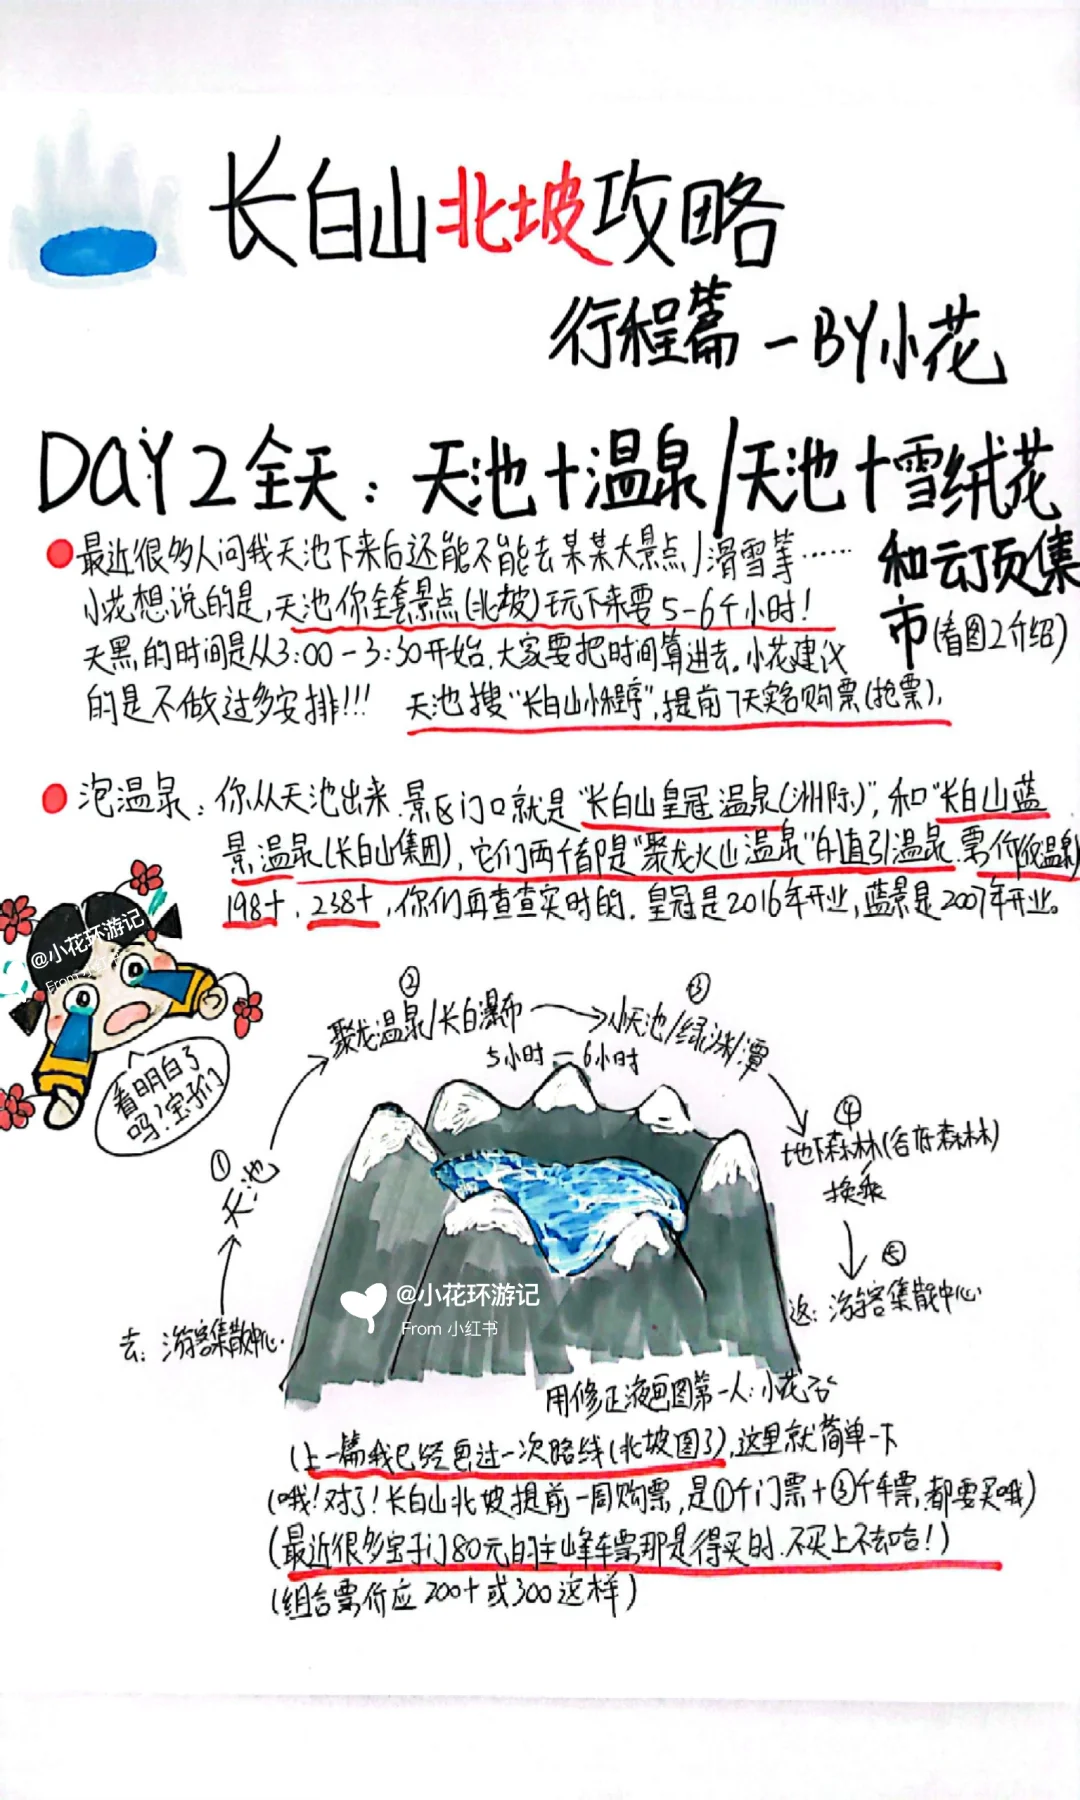 长白山北坡攻略
行程篇 - BY小花
DAY 2 全天：天池+温泉/天池+雪绒花
和云顶集
市(看图2介绍)
最近很多人问我天池下来后还能不能去某某大景点/滑雪等……
小花想说的是,天池你全套景点(北坡)玩下来要5-6个小时!
天黑的时间是从3:00-3:30开始,大家要把时间算进去。小花建议
的是不做过多安排!!! 天池搜"长白山小程序",提前7天实名购票(抢票),
泡温泉: 你从天池出来.景区门口就是"长白山皇冠温泉(洲际)",和"长白山蓝
景温泉(长白山集团),它们两个都是"聚龙火山温泉"的直引温泉.票价
198+,238+,你们再查查实时的.皇冠是2016年开业,蓝景是2007年开业。
@小花环游记
From 小红书
看明白了
吗?宝子们
去: 游客集散中心.
① 天池
② 聚龙温泉/长白瀑布
③ 小天池/绿渊潭
5小时-6小时
④ 地下森林(谷底森林)
换乘
⑤ 返: 游客集散中心
@小花环游记
From 小红书
用修正液画图第一人:小花
(上一篇我已经画过一次路线(北坡图3),这里就简单一下
(哦!对了!长白山北坡提前一周购票,是①个门票+③个车票,都要买哦)
(最近很多宝子们80元的主峰车票那是得买的.不买上不去哈!)
(组合票价应200+或300这样)